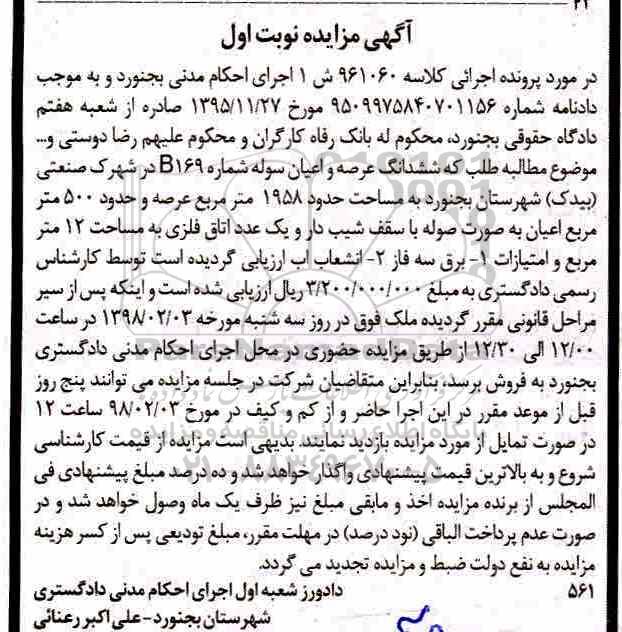 ۲۱
آگهی مزایده نوبت اول
در مورد پرونده اجرائی کلاسه ۹۶۱۰۶۰ ش ۱ اجرای احکام مدنی بجنورد و به موجب
دادنامه شماره ۹۵۰۹۹۷۵۸۴۰۷۰۱۱۵۶ مورخ ۱۳۹۵/۱۱/۲۷ صادره از شعبه هفتم
دادگاه حقوقی بجنورد، محکوم له بانک رفاه کارگران و محکوم علیهم رضا دوستی و...
موضوع مطالبه طلب که ششدانگ عرصه و اعیان سوله شماره B۱۶۹ در شهرک صنعتی
(بیدک) شهرستان بجنورد به مساحت حدود ۱۹۵۸ متر مربع عرصه و حدود ۵۰۰ متر
مربع اعیان به صورت صوله با سقف شیب دار و یک عدد اتاق فلزی به مساحت ۱۲ متر
مربع و امتیازات ۱- برق سه فاز ۲- انشعاب اب ارزیابی گردیده است توسط کارشناس
رسمی دادگستری به مبلغ ۳/۲۰۰/۰۰۰/۰۰۰ ریال ارزیابی شده است و اینکه پس از سیر
مراحل قانونی مقرر گردیده ملک فوق در روز سه شنبه مورخه ۱۳۹۸/۰۲/۰۳ در ساعت
۱۲/۰۰ الی ۱۲/۳۰ از طریق مزایده حضوری در محل اجرای احکام مدنی دادگستری
بجنورد به فروش برسد، بنابراین متقاضیان شرکت در جلسه مزایده می توانند پنج روز
قبل از موعد مقرر در این اجرا حاضر و از کم و کیف در مورخ ۹۸/۰۲/۰۳ ساعت ۱۲
در صورت تمایل از مورد مزایده بازدید نمایند. بدیهی است مزایده از قیمت کارشناسی
شروع و به بالاترین قیمت پیشنهادی واگذار خواهد شد و ده درصد مبلغ پیشنهادی فی
المجلس از برنده مزایده اخذ و مابقی مبلغ نیز ظرف یک ماه وصول خواهد شد و در
صورت عدم پرداخت الباقی (نود درصد) در مهلت مقرر، مبلغ تودیعی پس از کسر هزینه
مزایده به نفع دولت ضبط و مزایده تجدید می گردد.
۵۶۱ دادورز شعبه اول اجرای احکام مدنی دادگستری
شهرستان بجنورد-علی اکبر رعنائی